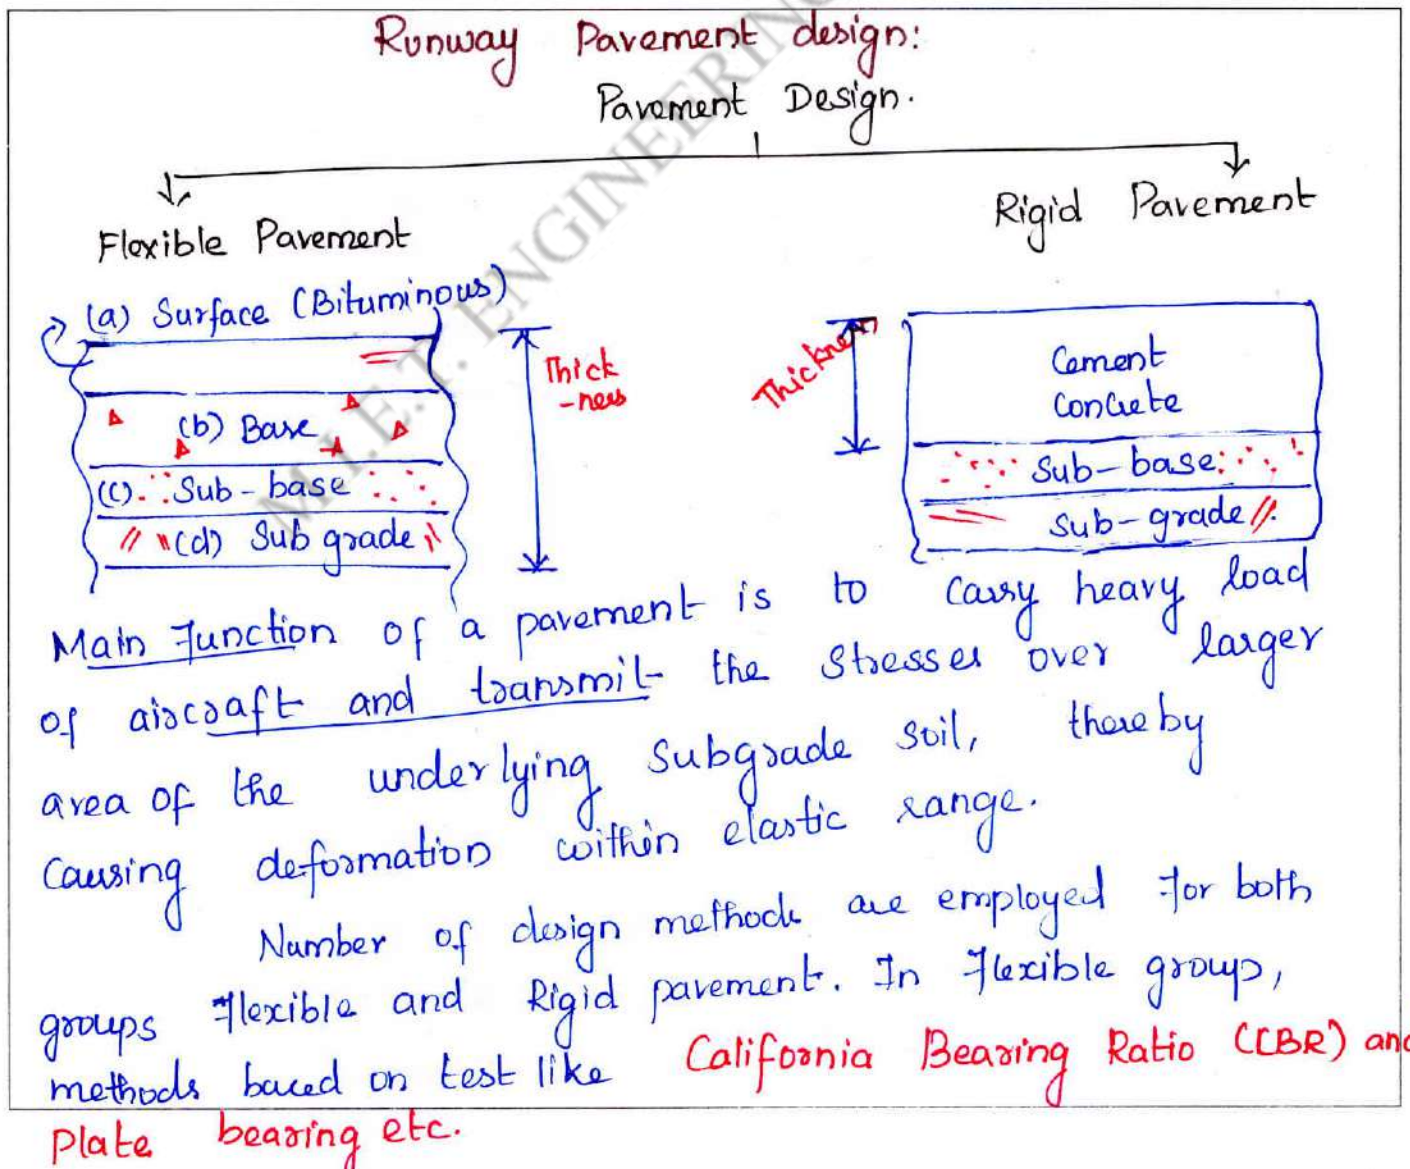 Runway Pavement design:
Pavement Design.
Flexible Pavement
Rigid Pavement
(a) Surface (Bituminous)
(b) Base
(c) Sub-base
(d) Sub grade
Thick
-ness
Thickness
Cement
Concrete
Sub-base
Sub-grade
Main function of a pavement is to carry heavy load
of aircraft and transmit the stresses over larger
area of the underlying subgrade soil, thereby
causing deformation within elastic range.
Number of design methods are employed for both
groups flexible and Rigid pavement. In flexible group,
methods based on test like California Bearing Ratio (CBR) and
Plate bearing etc.
M.I.E.T. ENGINEERING